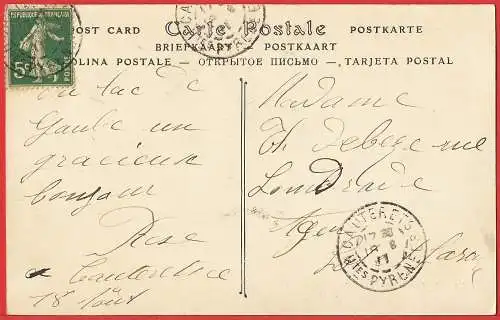 REPUBLIQUE FRANÇAISE
5c
POSTES
POST CARD Carte Postale POSTKARTE
BRIEFKAART — POSTKAART
OLINA POSTALE — ОТКРЫТОЕ ПИСЬМО — TARJETA POSTAL
Du lac de
Gaube un
gracieux
bonjour
Rose
18 Août
Madame
rue
Agen
CAUTERETS
17 20
18 8
11
Htes PYRENEES